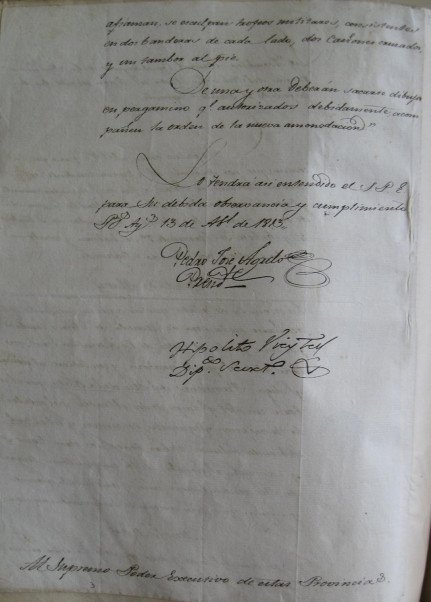 afirman, se esculpan trofeos militares, consistentes
en dos banderas de cada lado, dos cañones cruzados,
y un tambor al pie.
De una y otra deberán sacarse dibujos
en pergamino qᵉ autorizados debidamente acom
pañen la orden de la nueva amonedación.
Lo tendrá asi entendido el S. P. E.
para su debida observancia y cumplimiento
Bˢ Ayˢ 13 de Abˡ de 1813,
Pedro José Agrelo
Presidᵗᵉ
Hipolito Vieytes
Dipᵈᵒ Secretº.
Al Supremo Poder Executivo de estas Provincias.